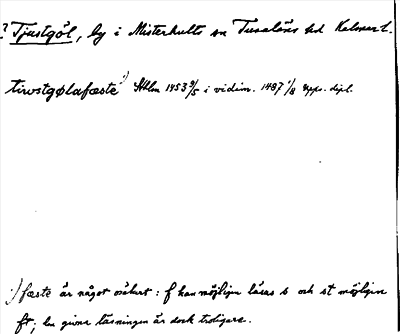 ? Tjustgöl, by i Misterhults sn Tunaläns hd Kalmar l.
tiwstgølafæste 1) Sthlm 1453 9/5 i vidim. 1487 1/8 Upps. dipl.
1) fæste är något osäkert: f kan möjligen läsas s och st möjligen
ft; den givna läsningen är dock troligare.